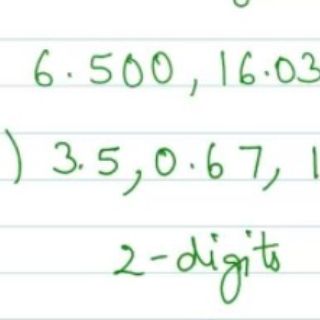 6.500, 16.03
) 3.5, 0.67, 1
2-digits